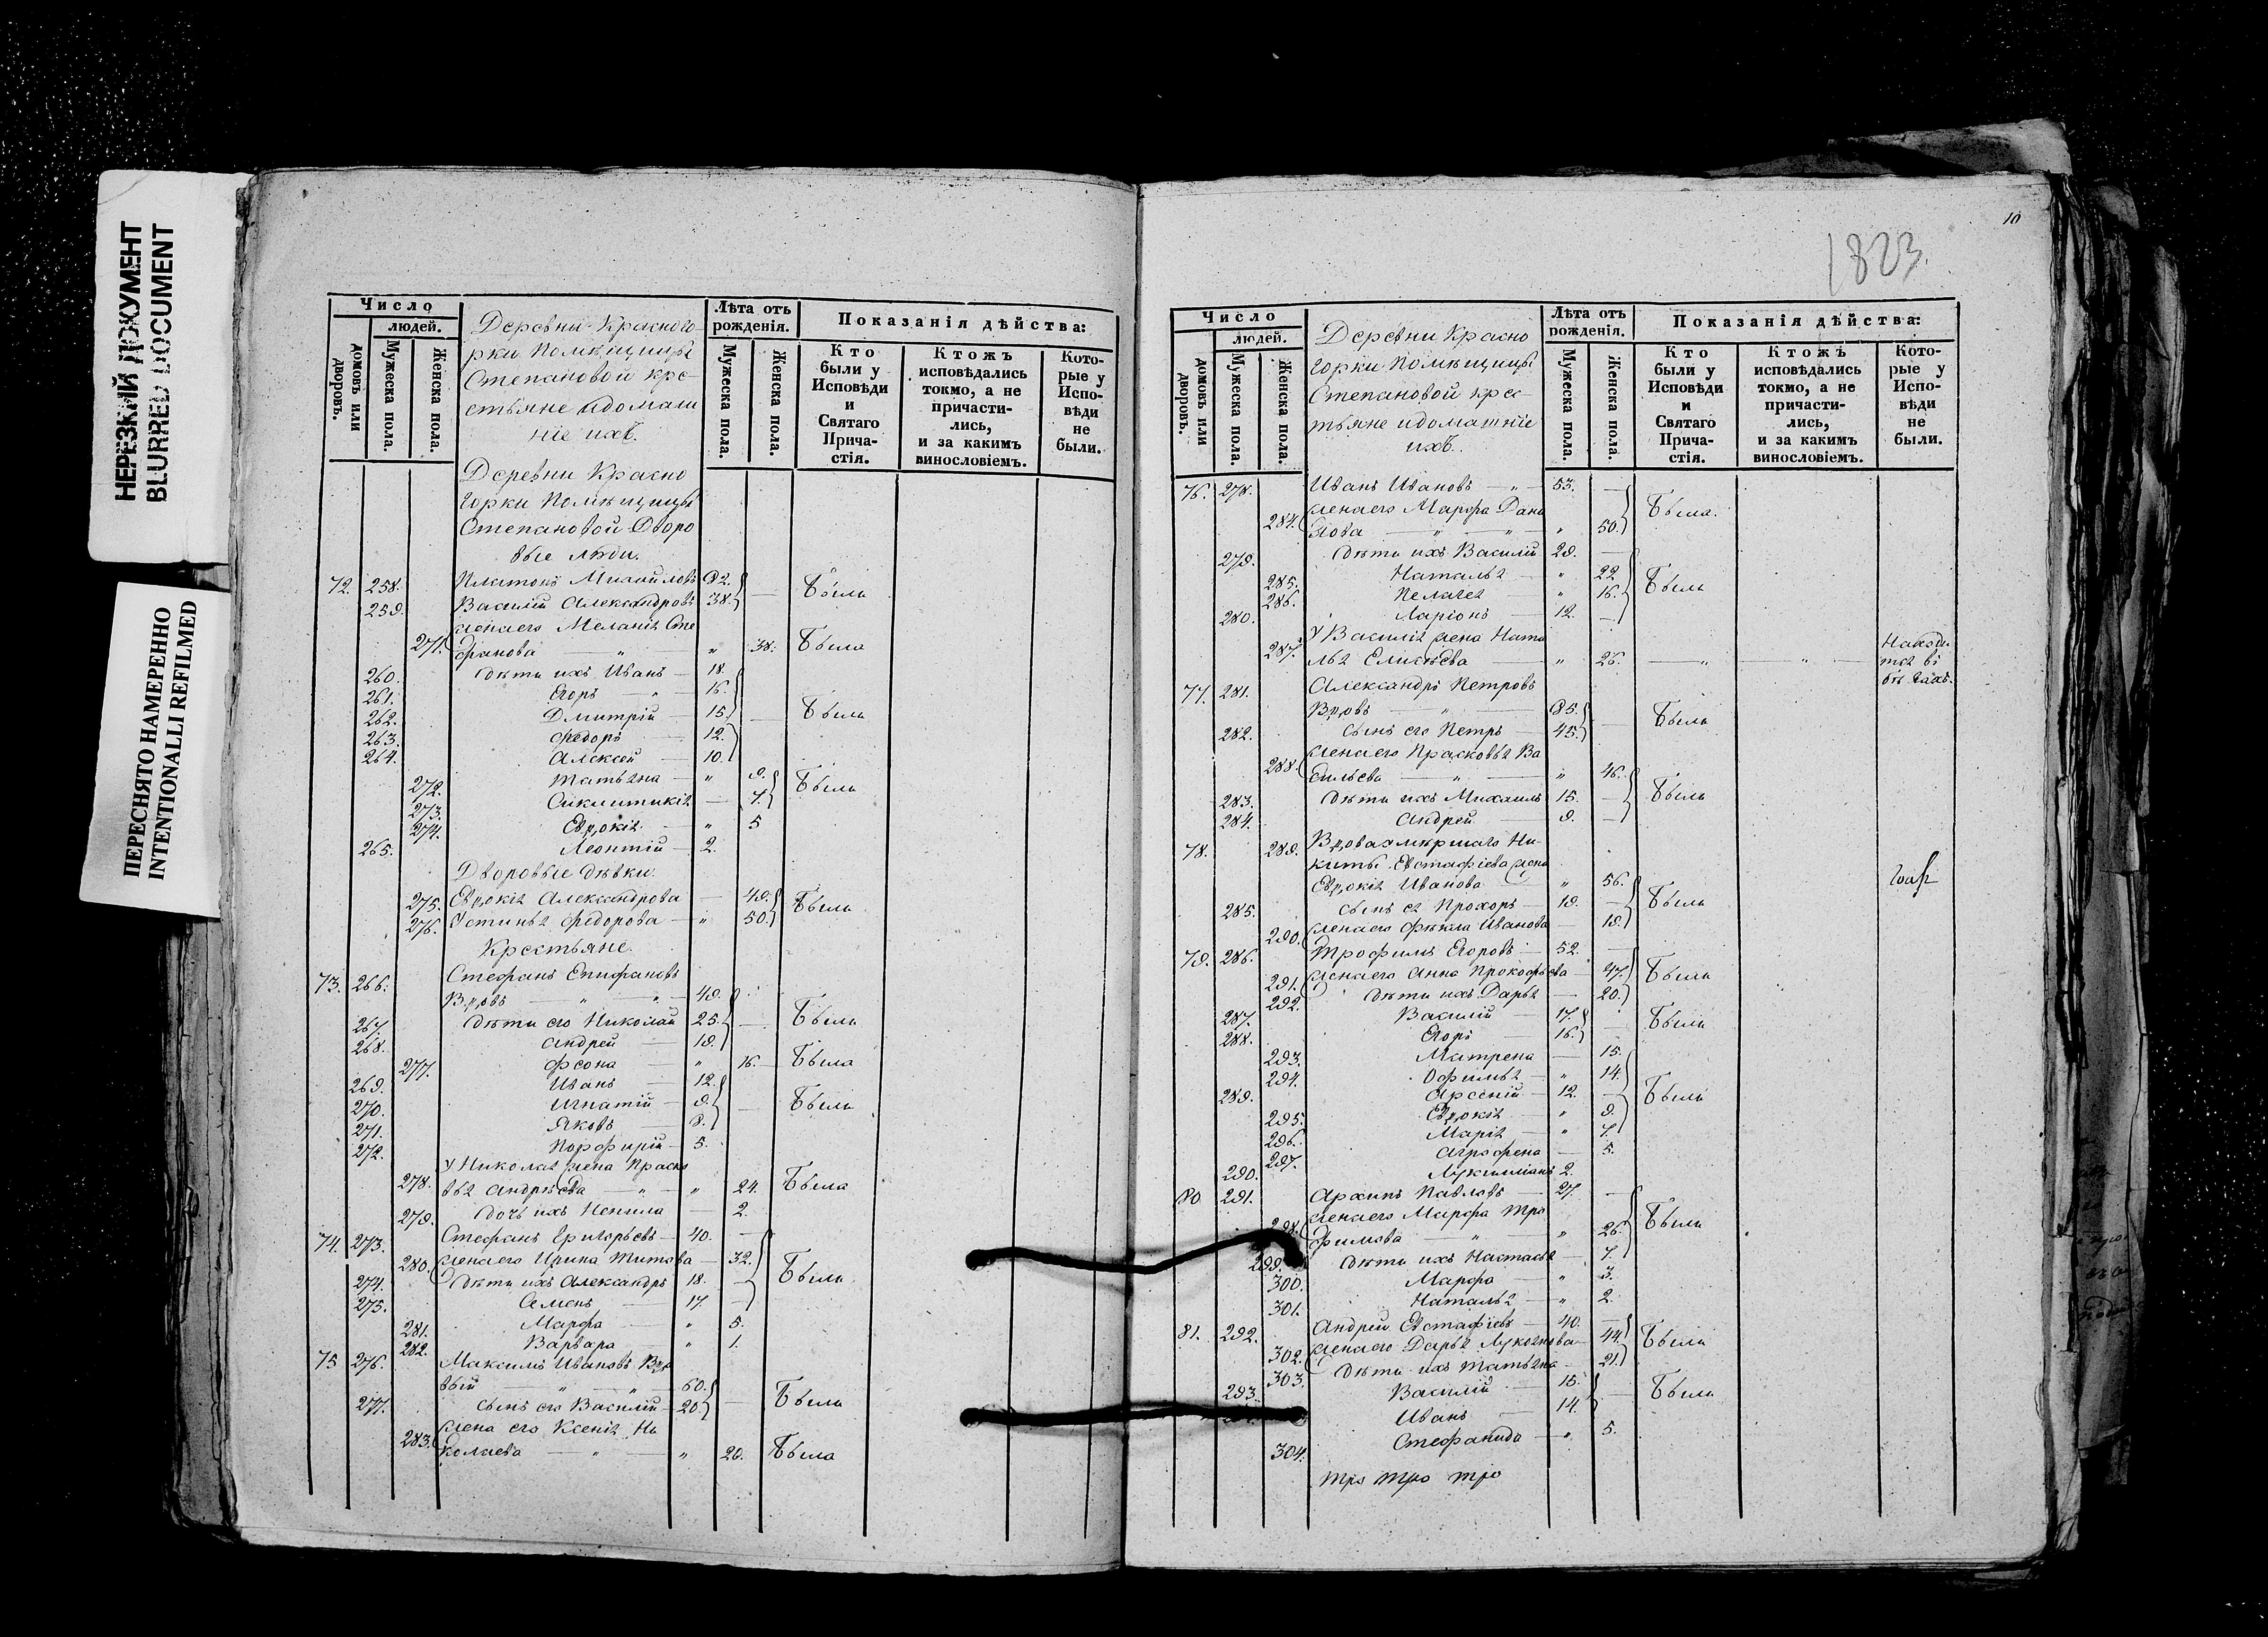 НЕРЕЗКИЙ ДОКУМЕНТ
BLURRED DOCUMENT
ПЕРЕСНЯТО НАМЕРЕННО
INTENTIONALLI REFILMED
Число
людей.
домовъ или дворовъ.
Мужеска пола.
Женска пола.
Деревни Красного
рки Помѣщицы
Степановой кре
стьяне и домаш
ніе ихъ.
Лѣта отъ рожденія.
Мужеска пола.
Женска пола.
Показанія дѣйства:
Кто были у Исповѣди и Святаго Причастія.
Ктожъ исповѣдались токмо, а не причастились, и за какимъ винословіемъ.
Которые у Исповѣди не были.
Деревни Красно
горки Помѣщицы
Степановой Дворо
вые люди.
72. 258. Платонъ Михайловъ 82. Были
259. Василій Александровъ 38.
жена его Меланія Сте
271. фанова " " 38. Была
260. дѣти ихъ Иванъ 18.
261. Егоръ " 16.
262. Дмитрій 15. Были
263. Федоръ 12.
264. Алексей 10.
272. Татьяна " 9. Были
273. 7.
274. Евдокія " 5
265. Леонтій 2.
Дворовые дѣвки.
275. Евдокія Александрова 49. Были
276. Устинья Федорова " 50.
Крестьяне.
73. 266. Стефанъ Епифановъ
Вдовъ " " 49.
267. дѣти его Николай 25. Были
268. Андрей 19.
277. Фсона " 16. Была
269. Иванъ 12.
270. Игнатій 9. Были
271. Яковъ 8.
272. Порфирій 5.
У Николая жена Праско
278. вья Андрѣева " " 24. Была
279. дочь ихъ Ненила 2.
74. 273. Стефанъ Григорьевъ 40.
280. жена его Ирина Титова 32. Были
274. дѣти ихъ Александръ 18.
275. Семенъ 17.
281. Марфа " 5.
282. Варвара " 1.
75 276. Максимъ Ивановъ Вдо
вый " " 60.
277. сынъ его Василій 20. Были
жена его Ксенія Ни
283. колаева " " 20. Была
10
1823
Число
людей.
домовъ или дворовъ.
Мужеска пола.
Женска пола.
Деревни Красно
горки Помѣщицы
Степановой крес
тьяне и домашніе
ихъ.
Лѣта отъ рожденія.
Мужеска пола.
Женска пола.
Показанія дѣйства:
Кто были у Исповѣди и Святаго Причастія.
Ктожъ исповѣдались токмо, а не причастились, и за какимъ винословіемъ.
Которые у Исповѣди не были.
76. 278. Иванъ Ивановъ " 53.
жена его Марфа Дани Была.
284. лова " " " 50.
279. дѣти ихъ Василій 29.
285. Наталья " 22 Были
286. Пелагея " 16.
280. Ларіонъ 12.
У Василія жена Ната
287. лья Елисѣева " 26. " " Находи
тся въ
бѣгахъ.
77. 281. Александръ Петровъ
Вдовъ " 85. Были
282. сынъ его Петръ 45.
жена его Прасковья Ва
288. сильева " " 46.
283. дѣти ихъ Михаилъ 15. Были
284. Андрей 9.
78. 289. Вдова умершаго Ни-
киты Евстафіева жена
Евдокія Иванова " 56.
285. сынъ ея Прохоръ 19. Были
290. жена его Фекла Иванова 19.
79. 286. Трофимъ Егоровъ 52.
291. жена его Анна Прокофьева 47. Были
292. дѣти ихъ Дарья 20.
287. Василій 17. Были
288. Егоръ 16.
293. Матрена 15.
294. Офимья " 14.
289. Арсеній 12. Были
295. Евдокія " 9.
296. Марія " 7.
297. Агрофена 5.
290. 2.
80 291. Архипъ Павловъ 27.
жена его Марфа Тро
298. фимова " " 26. Были
299. дѣти ихъ Настасья 7.
300. Марфа " 3.
301. Наталья " 2.
81. 292. Андрей Евстафіевъ 40.
302. жена его Дарья Лукоянова 44. Были
303. дѣти ихъ Татьяна 21.
293. Василій 15. Были
Иванъ 14.
304. Стефанида " 5.
тро тро тро